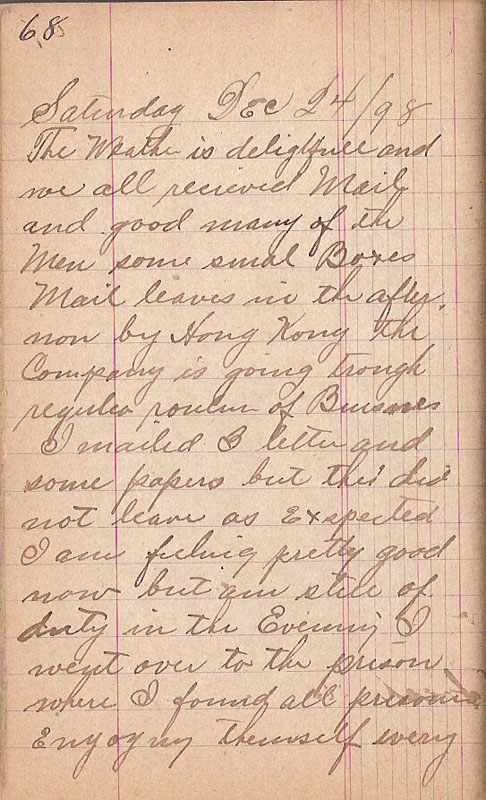 68
Saturday Dec 24/98
The Weather is delightfull and
we all recieved Mail
and good many of the
Men some smal Boxes
Mail leaves in the after
non by Hong Kong the
Company is going trough
reguler routin of Buisnes
I mailed 3 letter and
some papers but this did
not leave as Expected
I am feeling pretty good
now but am still of
duty in the Evening I
went over to the prison
where I found all prisoners
Enyoyny themself every